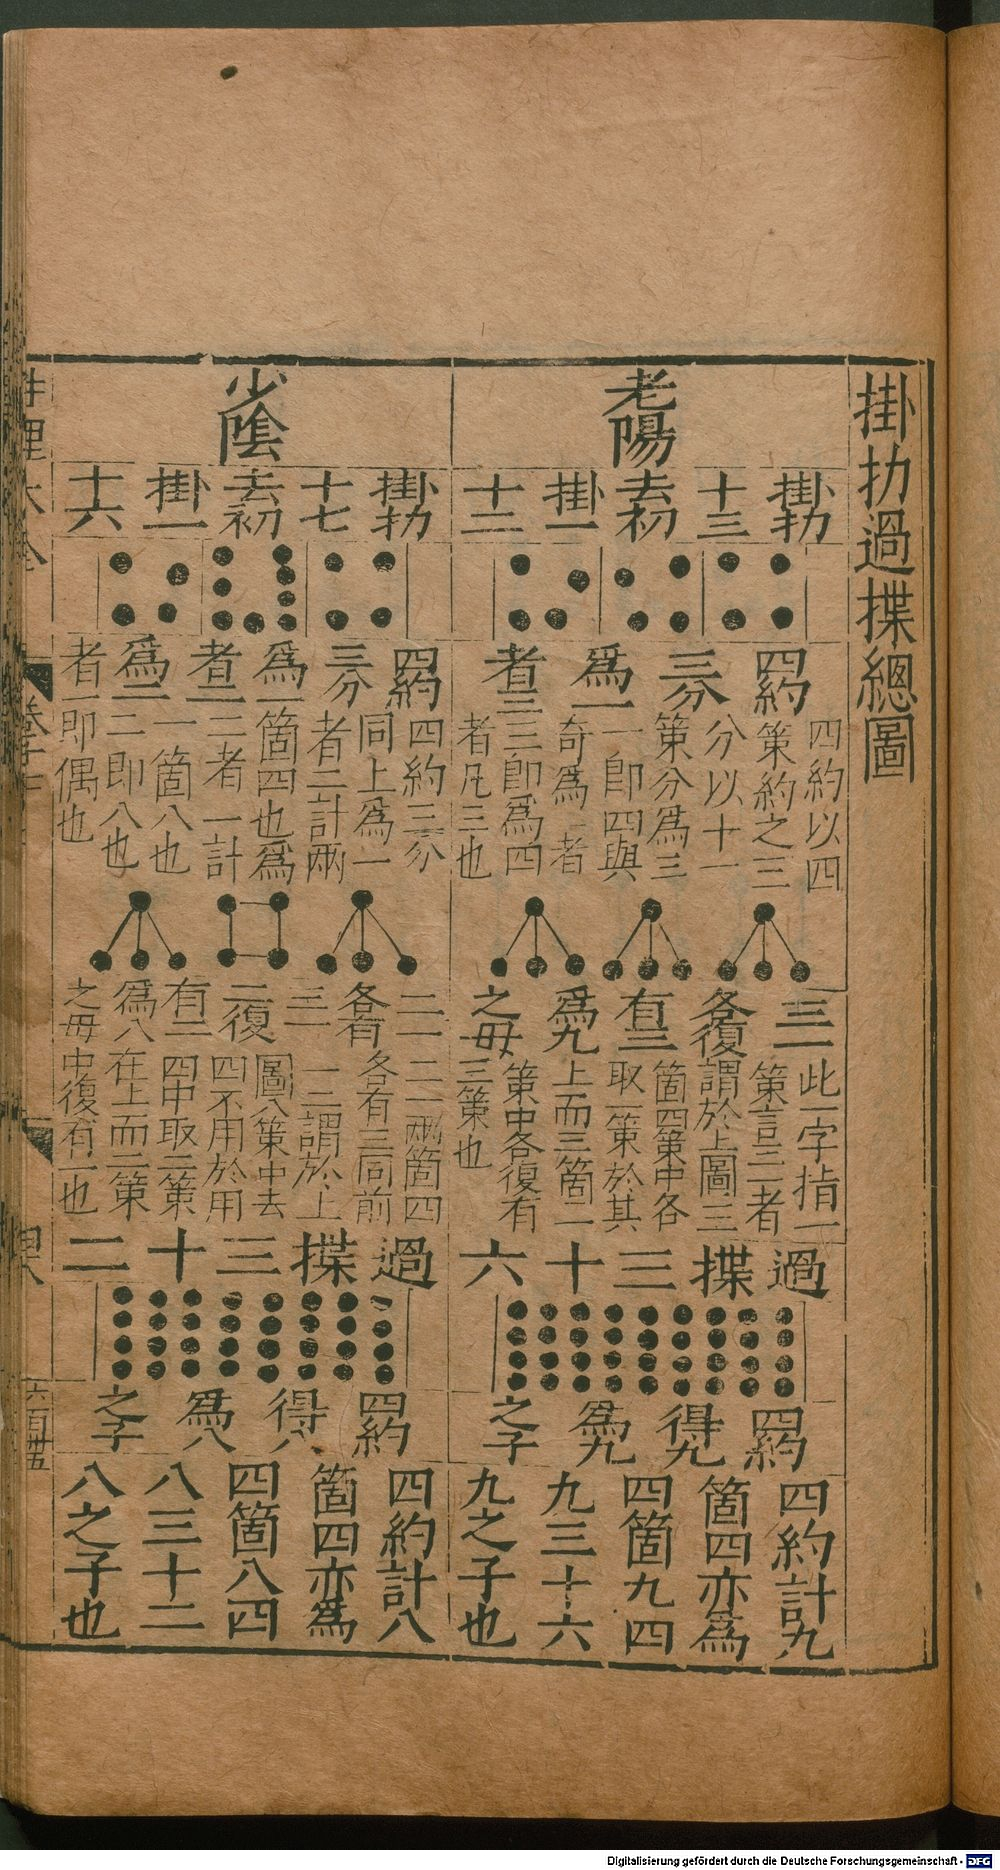 掛扐過揲總圖
老陽
掛扐
十三
去初
掛一
十二
四約
三分
爲一
者三
四約以四
策約之三
分以十一
策分爲三
一即四與
奇爲一者
三即爲四
者凡三也
三一
各復
有三
爲九
之母
此一字指一
策言三者
謂於上圖三
箇四策中各
取一策於其
上而三箇一
策中各復有
三策也
過揲三十六
四約
得九
爲九
之子
四約計九
箇四亦爲
四箇九四
九三十六
九之子也
少陰
掛扐
十七
去初
掛一
十六
四約
三分
爲一
者二
爲二
者一
四約三分
同上爲一
者二計兩
箇四也爲
二者一計
一箇八也
二即八也
即偶也
二一
各有
三一
二復
有二
爲八
之母
二一兩箇四
各有三同前
一二謂於上
圖八策中去
四不用於用
四中取二策
在上而二策
中復有二也
過揲三十二
四約
得八
爲八
之子
四約計八
箇四亦爲
四箇八四
八三十二
八之子也
性理大全
六百卅五
Digitalisierung gefördert durch die Deutsche Forschungsgemeinschaft - DFG